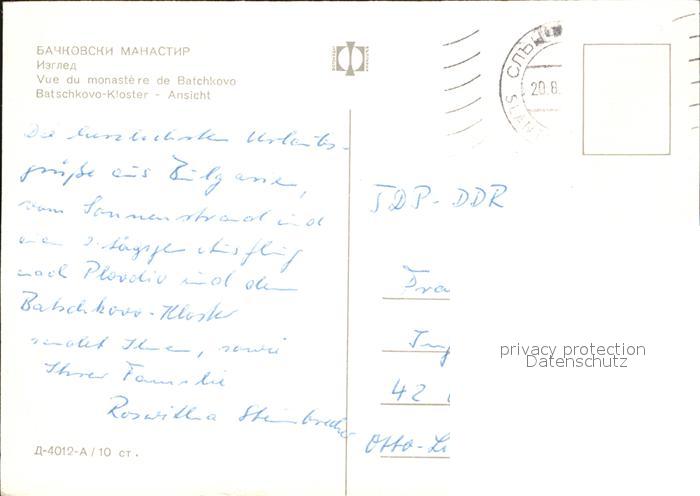 БАЧКОВСКИ МАНАСТИР
Изглед
Vue du monastère de Batchkovo
Batschkovo-Kloster - Ansicht
СЛЪН
20.8.
SLAN
Die herzlichsten Urlaubs-
grüße aus Bulgarien,
vom Sonnenstrand und
einem 2-tägigen Ausflug
nach Plovdiv und dem
Batschkovo-Kloster
sendet Ihnen, sowie
Ihrer Familie
Roswitha
TDP-DDR
Fra
Ing
42
Otto-
privacy protection
Datenschutz
Д-4012-А / 10 ст.